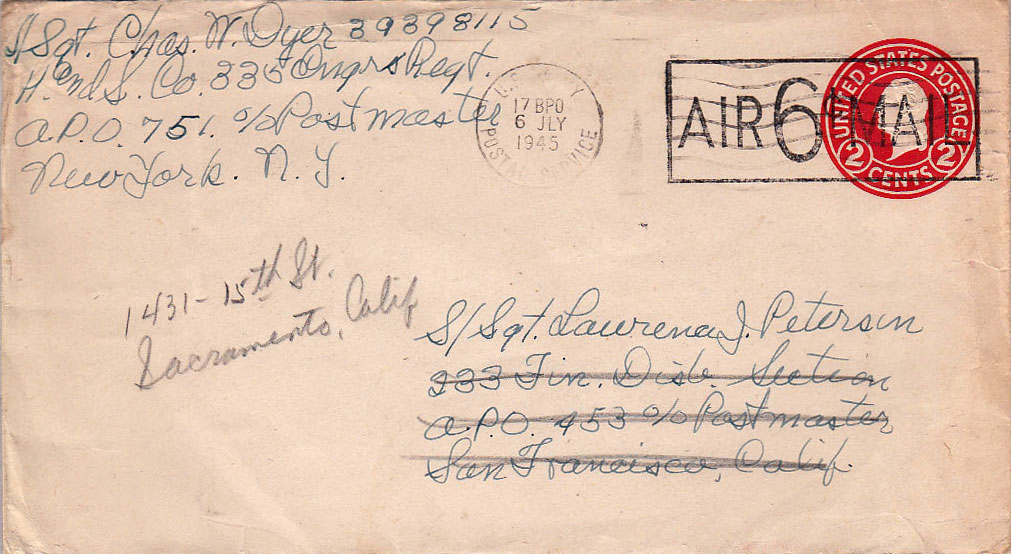 S/Sgt. Chas. W. Dyer 39398115
H. and S. Co. 335 Engrs Regt.
A.P.O. 751. c/o Postmaster
New York. N. Y.
U.S. ARMY
17 BPO
6 JLY
1945
POST SERVICE
AIR 6¢ MAIL
UNITED STATES POSTAGE
2 CENTS 2
1431 - 15th St.
Sacramento, Calif
S/Sgt. Laurence J. Petersen
233 Fin. Disb. Section
A.P.O. 453 c/o Postmaster
San Francisco, Calif.